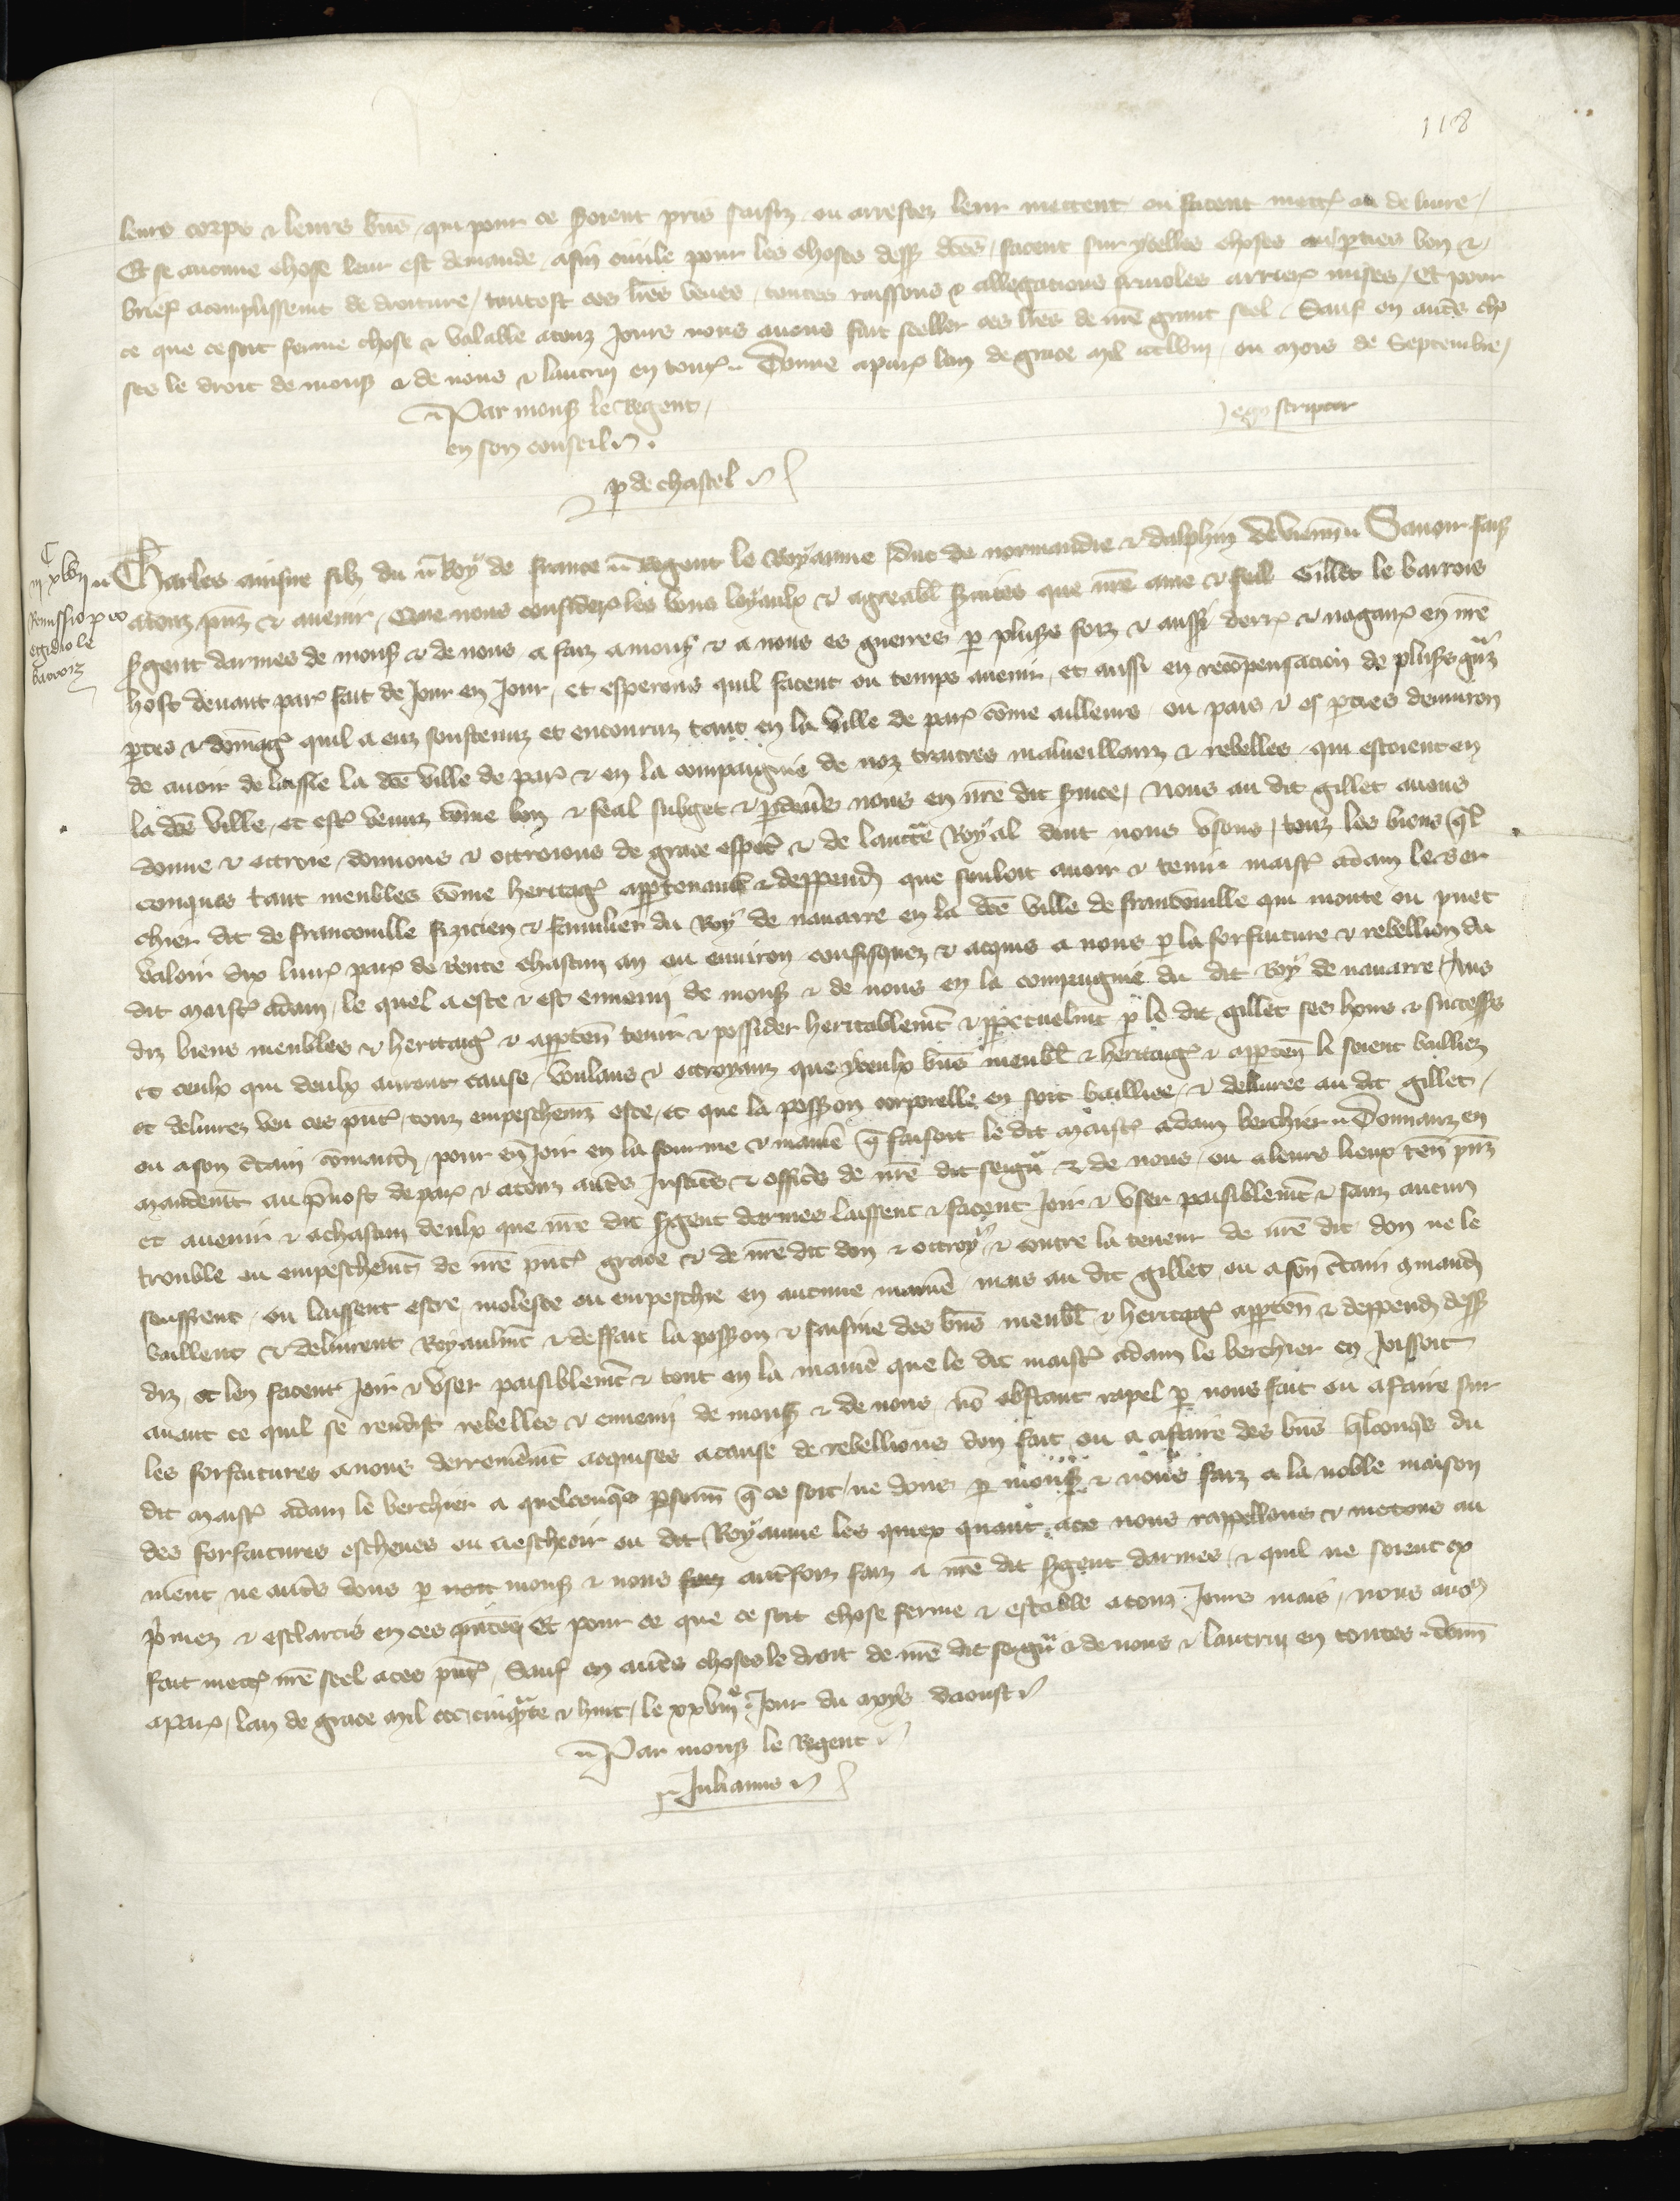 118
leurs corps & leurs bñs qui pour ce seroient pris saisiz ou arrestez leur mettent ou facent mettr̃ au deliure /
Et se aucune chose leur est demande afin ciuile pour les choses dess dc̃es / facent sur ycelles choses aus parties bon &
brief acomplissemt de droiture / tantost ces lr̃es veues / toutes raisons & allegations friuoles arrier mises / Et pour
ce que ce soit ferme chose & valable atouz Jours nous auons fait seeller ces lr̃es de nr̃e grant seel / Sauf en autr̃s cho
ses le droit de mons & de nous & lautruy en tout / Donne a paris lan de grace mil ccclviij ou mois de Septembre /
Par mons le Regent /
en son conseil
ego scriptor
p de chastel
Charles ainsne filz du Roy de france Regent le Royaume duc de normandie & dalphin de vienn̄ Sauoir fais
C
iij xlvij
Remissio pro
egidio le
barroiz
atouz pñs & auenir / Que nous considere les bons loyaulx & agreabl seruices que nr̃e ame & feal Gillet le barrois
sergent darmes de mons & de nous a faiz a mons & a nous es guerres par plusrs foiz & aussi derr & nagair en nr̃e
host deuant paris fait de Jour en Jour / et esperons quil facent ou temps auenir / et aussi en recompensacion de plusrs grãz
pertes & domag quil a euz soustenuz et encouruz tant en la ville de paris com̃e ailleurs ou pais & es parties denuiron
de auoir delaissie la dc̃e ville de paris & en la compaignie de noz traitres malueillanz & rebelles qui estoient en
la dc̃e ville / et estr̃ venuz com̃e bon & feal subget & par deũs nous en nr̃e dit seruice / Nous au dit gillet auons
donne & ottroie donnons & ottroions de grace especl & de lauctẽ Royal dont nous vsons / touz les biens ql
conques tant meubles com̃e heritag appartenanc & deppend que souloit auoir & tenir maistr̃ adam le ber
chier dit de franconuille fizicien & familier du Roy de nauarre en la dc̃e ville de franconuille qui monte ou puet
valoir dix liur paris de Rente chascun an ou enuiron confisquez & acquis a nous par la forfaiture & rebellion du
dit maistr̃ adam / le quel a este & est ennemi de mons & de nous en la compaignie du dit Roy de nauarre / Aus
diz biens meubles & heritaig & apparten̄ tenir & possider heritablemt & perpetuelmt par le dit gillet ses hoirs & successrs
et ceulx qui deulx auront cause / voulans & ottroyanz que yceulx bñs meubl & heritaig & apparten̄ li soient bailliez
et deliurez veu ces pñtes touz empeschemz oste / et que la possession corporelle en soit bailliee & deliuree au dit gillet /
ou a son c̃tain com̃and / pour en Joir en la fourme & manie q̃ faisoit le dit maistr̃ adam berchier / Donnanz en
mandemt au preuost de paris & atouz autr̃s Justic̃s & offic̃s de nr̃e dit seigñ & de nous / ou a leurs lieux ten̄ pñz
et auenir & achascun deulx que nr̃e dit sergent darmes laissent & facent Joir & vser paisiblemt & sanz aucun
trouble ou empeschemt de nr̃e pñte grace & de nr̃e dit don & ottroy / & contre la teneur de nr̃e dit don ne le
seuffrent ou laissent estre moleste ou empeschie en aucune manie mais au dit gillet ou a son c̃tain comand
baillent & deliurent Royaulmt & deffait la possession & saisine des bñs meubl & heritag apparten̄ & deppend dess
diz / et len facent Joir & vser paisiblemt & tout en la manie que le dit maistr̃ adam le berchier en Joissoit
auant ce quil se rendist rebelles & ennemi de mons & de nous / no obstant rapel par nous fait ou afaire sur
les forfaitures a nous derremẽmt acquises a cause de rebellions don fait ou a afaire des bñs qlconq̃s du
dit maistr̃ adam le berchier a quelconq̃s personn̄ q̃ ce soit / ne dons par mons & nous faiz a la noble maison
des forfaitures escheues ou a escheoir ou dit Royaume les quiex quant ace nous rappellons & metons au
nient / ne autr̃s dons par mons & nous autrefoiz faiz a nr̃e dit sergent darmes / & quil ne soient ex
primez & esclarcis en ces pñtes / Et pour ce que ce soit chose ferme & estable atouz Jours mais / nous auõs
fait mettr̃ nr̃e seel a ces pñtes / Sauf en autr̃s choses le droit de nr̃e dit seigñ & de nous & lautruy en toutes / donn̄
a paris / lan de grace mil ccc cinquãte & huit / le xxviije Jour du moys daoust
Par mons le Regent
Julianus